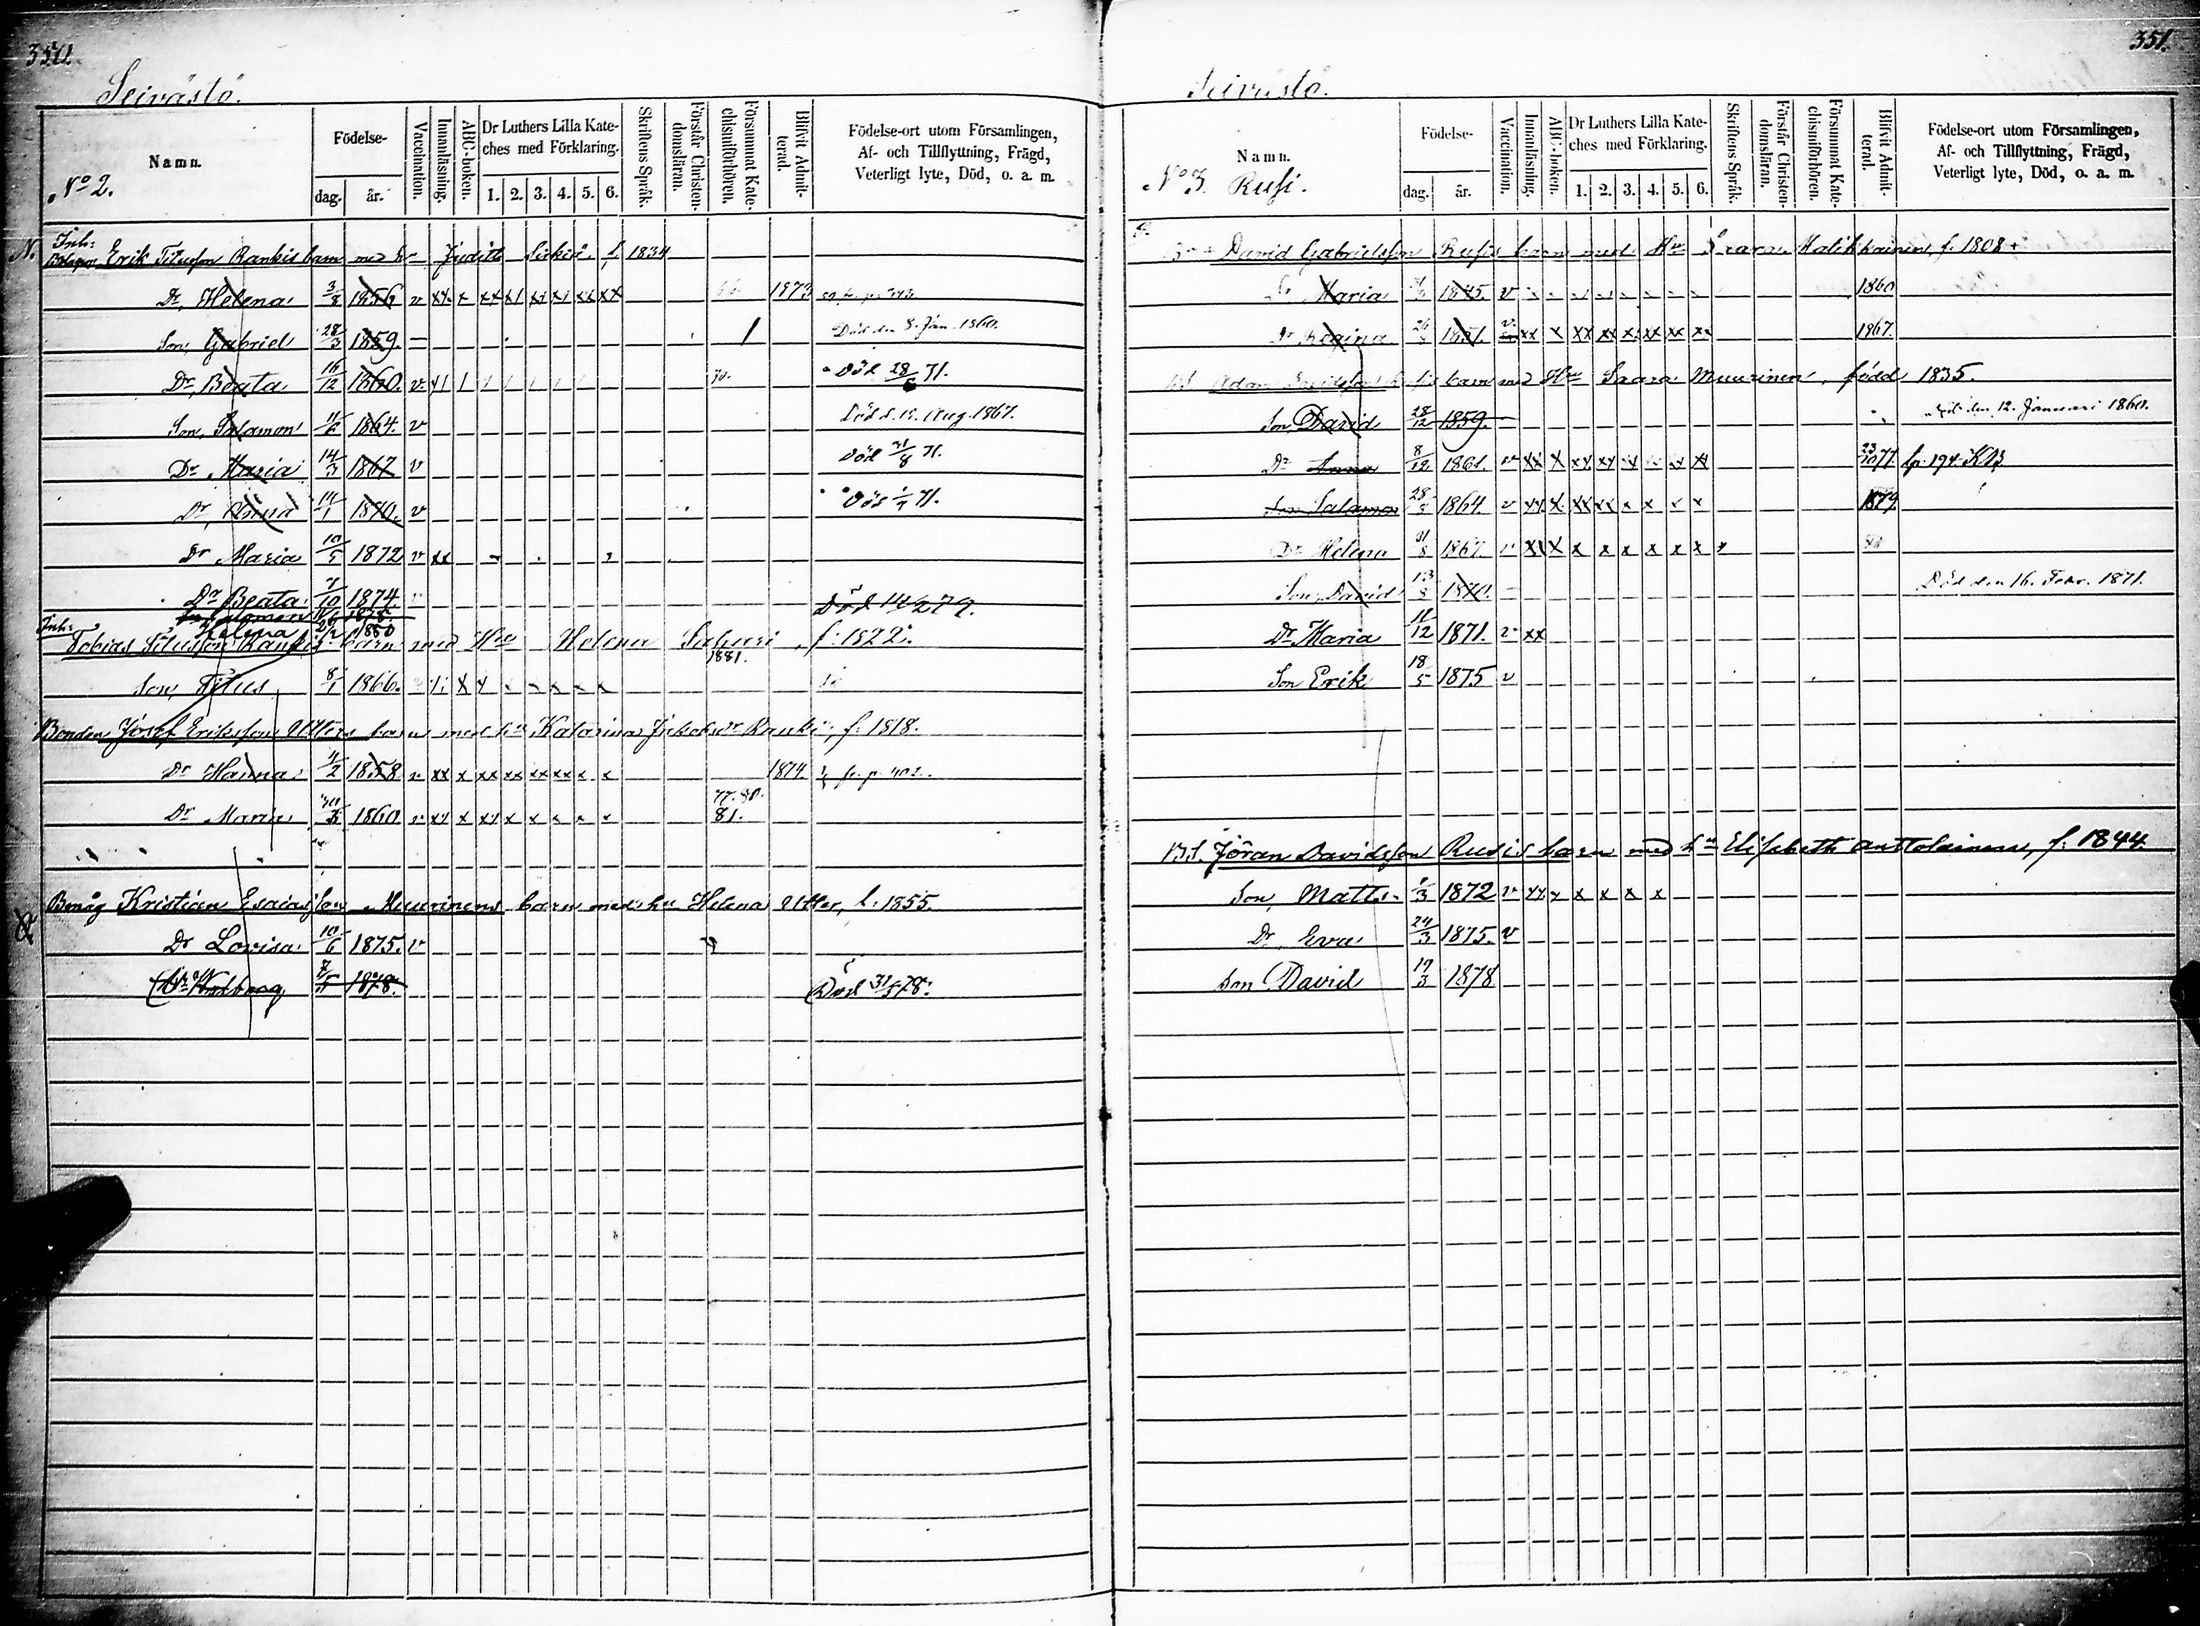 350.
Seivästö.
Namn.
No 2.
Födelse-
dag.
år.
Vaccination.
Innanläsning.
ABC-boken.
Dr Luthers Lilla Kate-
ches med Förklaring.
1. 2. 3. 4. 5. 6.
Skriftens Språk.
Förstår Christen-
domsläran.
Försummat Kate-
chismiförhören.
Blifvit Admit-
terad.
Födelse-ort utom Församlingen,
Af- och Tillflyttning, Frägd,
Veterligt lyte, Död, o. a. m.
N. Inh: Erik Titusson Rankis barn med h Judith f. 1834
Dr, Helena 3/8 1856 v xx x xx x1 xx x1 xx xx 1873
Son, Gabriel 28/3 1859. Död den 8. Jan. 1860.
Dr, Beata 16/12 1860. v 70. Död 28/6 71.
Son, Salamon 1864. v Död d. 15. Aug. 1867.
Dr Maria 14/3 1867 v Död 31/8 71.
Dr, Anna 14/1 1870. v Död 71.
Dr Maria 10/5 1872 v xx
Dr Beata 7/10 1874. Död 14/2 79.
Salamon 1878
Helena 1880
Inh: Tobias Titusson Rankis barn med Hu Helena f. 1822.
1881.
Son, Titus 8/1 1866.
Bonden Josef Eriksson Utters barn med hu Katarina Jakobsdr Ranki, f. 1818.
Dr Hanna 4/2 1858 v xx x xx xx xx xx x x 1874.
77. 80.
Dr Maria 30/3 1860 v xx x xx x x x x x 81.
Bmåg Kristian Esaiasson Muurinens barn med hu Helena Utter, f. 1855.
Dr Lovisa 10/6 1875. v
(Dr Walborg 2/5 1878. Död 31/5 78.
351.
Seivästö.
Namn.
No 3. Rusi.
Födelse-
dag.
år.
Vaccination.
Innanläsning.
ABC-boken.
Dr Luthers Lilla Kate-
ches med Förklaring.
1. 2. 3. 4. 5. 6.
Skriftens Språk.
Förstår Christen-
domsläran.
Försummat Kate-
chismiförhören.
Blifvit Admit-
terad.
Födelse-ort utom Församlingen,
Af- och Tillflyttning, Frägd,
Veterligt lyte, Död, o. a. m.
David Gabrielsson Rusis barn med Hu Saara Malikkainen, f. 1808 +
Maria 1845. v 1860
Dr Regina 1851. v xx x xx xx x xx xx x 1867.
Adam Davidsson barn med Hu Saara Muurinen, född 1835.
Son, David 28/12 1859. Död den 12. Januari 1860.
Dr Anna 8/12 1861. v xx x xx xx x x xx 23/10 77. fr p. 194. KB
Son Salamon 28/5 1864. v xx x xx xx x x x x 1879.
Dr Helena 31/8 1867. v xx x x x x x x x x
Son, David 13/8 1870. Död den 16. Febr. 1871.
Dr Maria 11/12 1871. v xx
Son Erik 18/5 1875 v
Bs. Jöran Davidsson Rusis barn med hu Elisabeth Anttolainen, f. 1844
Son, Matts 1872 v xx x x x x x
Dr, Eva 24/3 1875. v
Son David 17/3 1878